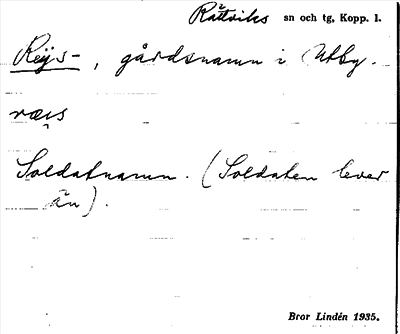 Rättviks sn och tg, Kopp. l.
Reijs-, gårdsnamn i Utby.
ræis
Soldatnamn. (Soldaten lever
än).
Bror Lindén 1935.